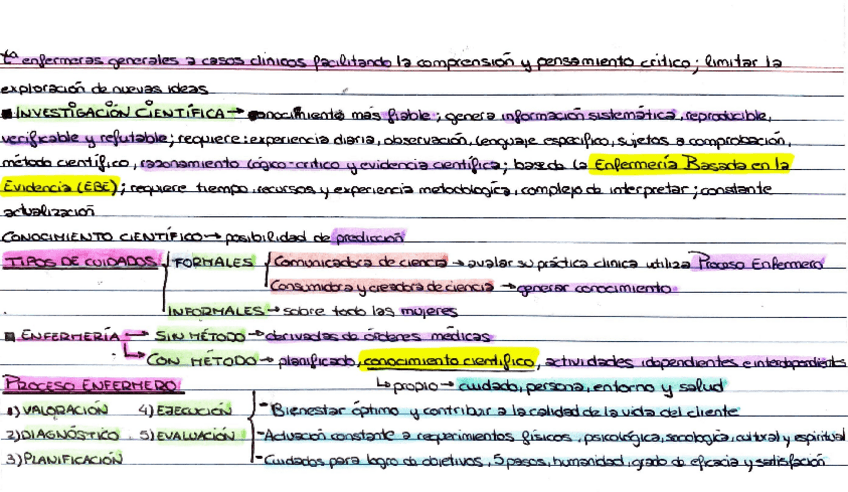 tª enfermeras generales a casos clínicos facilitando la comprensión y pensamiento crítico; limitar la
exploración de nuevas ideas
■ INVESTIGACIÓN CIENTÍFICA → conocimiento más fiable; genera información sistemática, reproducible,
verificable y refutable; requiere: experiencia diaria, observación, lenguaje específico, sujetos a comprobación,
método científico, razonamiento lógico-crítico y evidencia científica; basada la Enfermería Basada en la
Evidencia (EBE); requiere tiempo, recursos y experiencia metodológica, complejo de interpretar; constante
actualización
CONOCIMIENTO CIENTÍFICO → posibilidad de predicción
TIPOS DE CUIDADOS FORMALES Comunicadora de ciencia → avalar su práctica clínica utiliza Proceso Enfermero
Consumidora y creadora de ciencia → generar conocimiento
INFORMALES → sobre todo las mujeres
■ ENFERMERÍA → SIN MÉTODO → derivadas de órdenes médicas
↳ CON MÉTODO → planificado, conocimiento científico, actividades idependientes e interdependients
PROCESO ENFERMERO ↳ propio → cuidado, persona, entorno y salud
1) VALORACIÓN 4) EJECUCIÓN - Bienestar óptimo y contribuir a la calidad de la vida del cliente
2) DIAGNÓSTICO 5) EVALUACIÓN - Actuación constante a requerimientos físicos, psicológica, sociologica, cultural y espiritual
3) PLANIFICACIÓN - Cuidados para logro de objetivos, 5 pasos, humanidad, grado de eficacia y satisfación